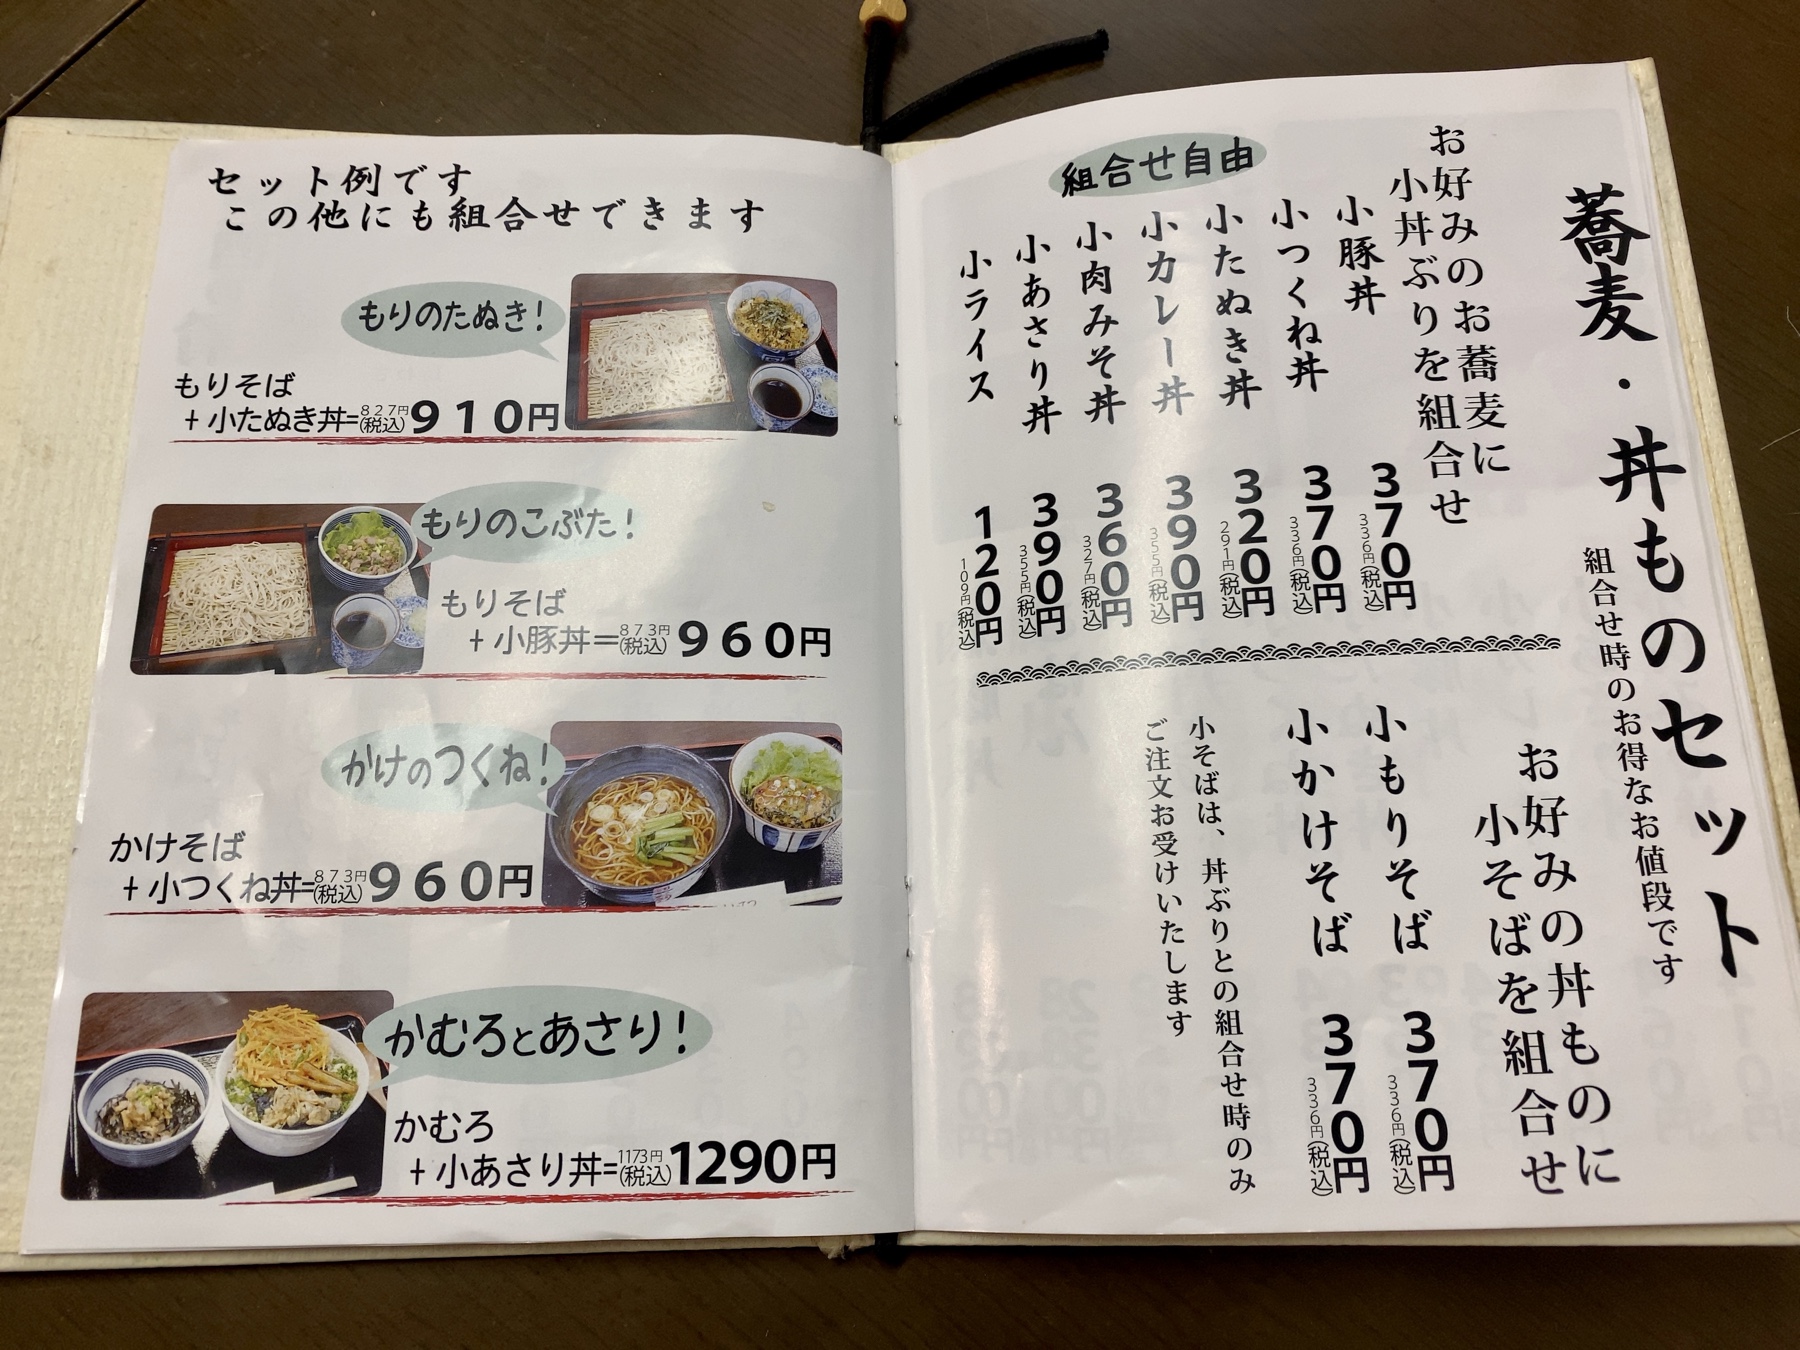 セット例です
この他にも組合せできます
もりのたぬき！
もりそば
+ 小たぬき丼=827円(税込)910円
もりのこぶた！
もりそば
+ 小豚丼=873円(税込)960円
かけのつくね！
かけそば
+ 小つくね丼=873円(税込)960円
かむろとあさり！
かむろ
+ 小あさり丼=1173円(税込)1290円
蕎麦・丼ものセット
組合せ時のお得なお値段です
お好みのお蕎麦に
小丼ぶりを組合せ
組合せ自由
小豚丼 336円(税込)370円
小つくね丼 336円(税込)370円
小たぬき丼 291円(税込)320円
小カレー丼 355円(税込)390円
小肉みそ丼 327円(税込)360円
小あさり丼 355円(税込)390円
小ライス 109円(税込)120円
お好みの丼ものに
小そばを組合せ
小もりそば 336円(税込)370円
小かけそば 336円(税込)370円
小そばは、丼ぶりとの組合せ時のみ
ご注文お受けいたします